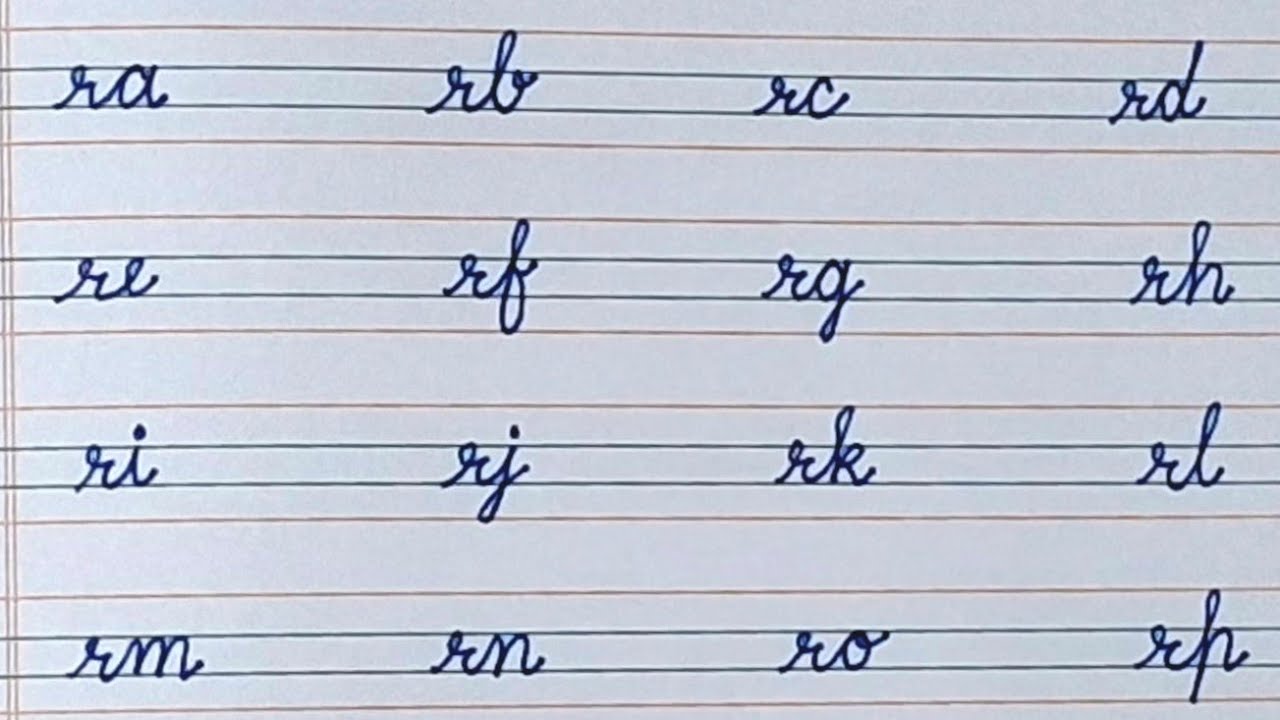 ra rb rc rd
re rf rg rh
ri rj rk rl
rm rn ro rp